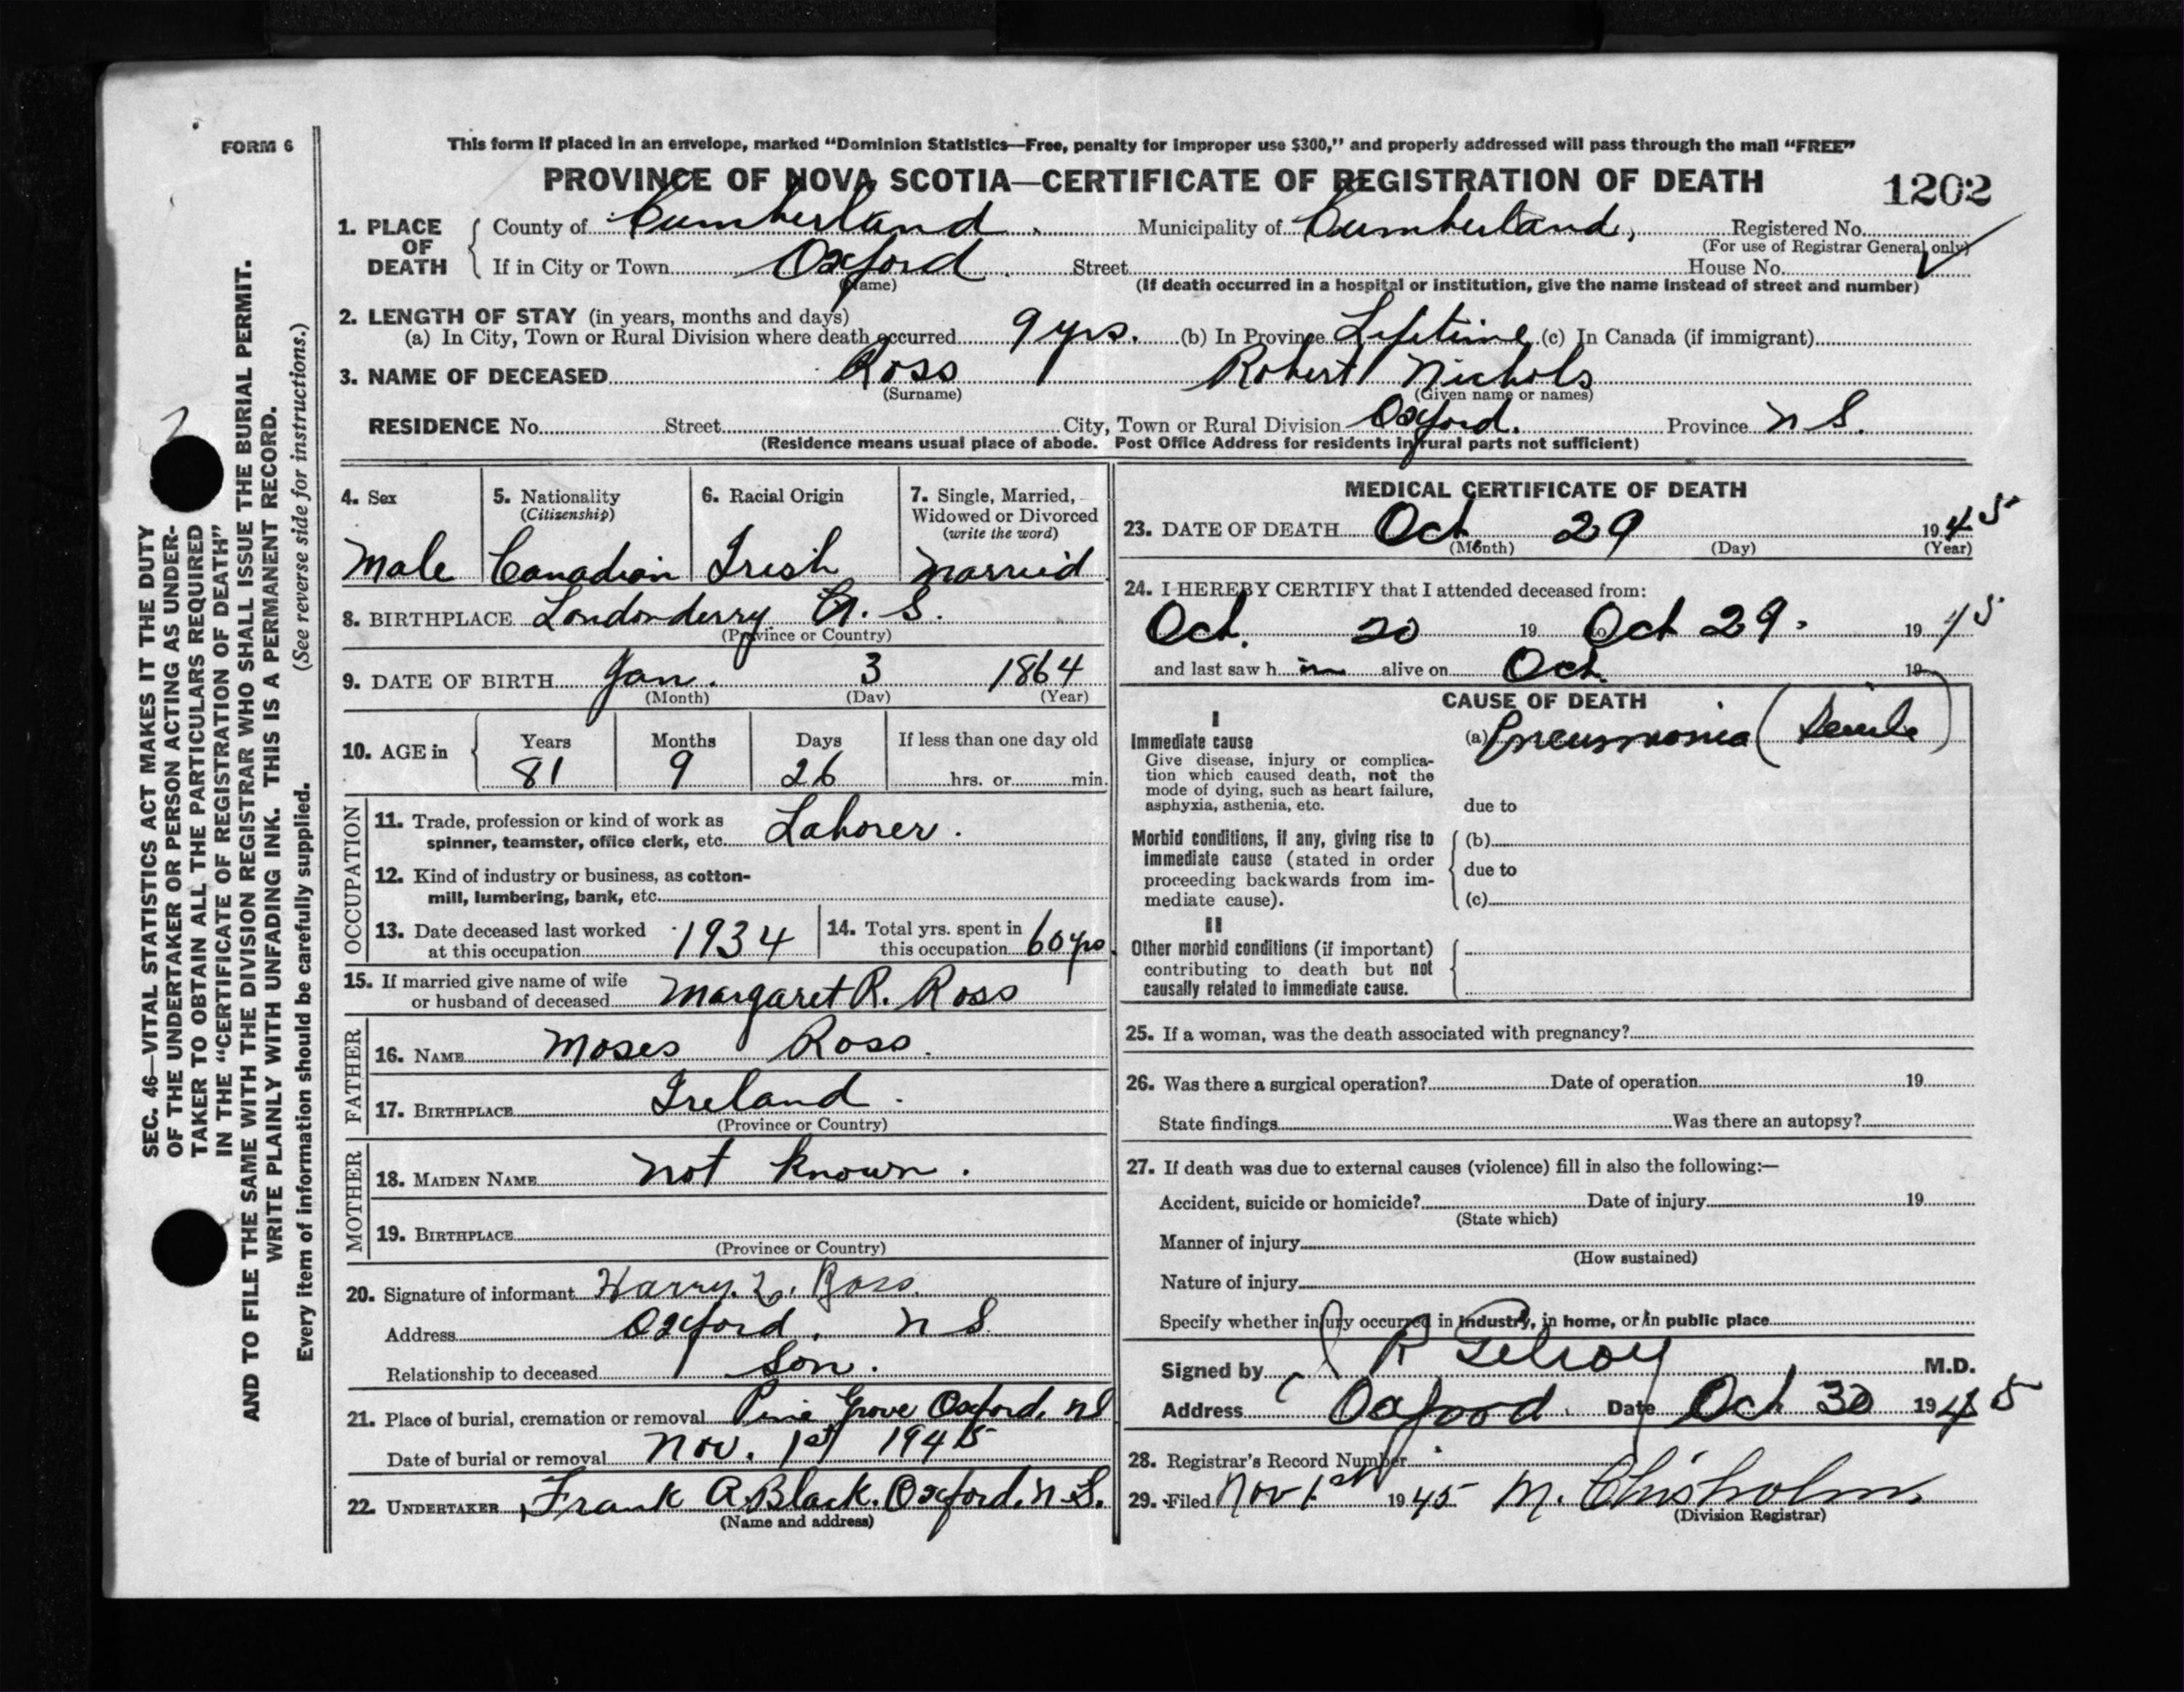 FORM 6
This form if placed in an envelope, marked “Dominion Statistics—Free, penalty for improper use $300,” and properly addressed will pass through the mail “FREE”
PROVINCE OF NOVA SCOTIA—CERTIFICATE OF REGISTRATION OF DEATH
1202
1. PLACE OF DEATH { County of Cumberland. Municipality of Cumberland, Registered No.
(For use of Registrar General only)
If in City or Town Oxford. Street House No.
(Name) (If death occurred in a hospital or institution, give the name instead of street and number)
2. LENGTH OF STAY (in years, months and days)
(a) In City, Town or Rural Division where death occurred 9 yrs. (b) In Province Lifetime (c) In Canada (if immigrant)
3. NAME OF DECEASED Ross Robert Nichols
(Surname) (Given name or names)
RESIDENCE No. Street City, Town or Rural Division Oxford. Province N S.
(Residence means usual place of abode. Post Office Address for residents in rural parts not sufficient)
4. Sex
Male
5. Nationality
(Citizenship)
Canadian
6. Racial Origin
Irish
7. Single, Married,
Widowed or Divorced
(write the word)
Married
8. BIRTHPLACE Londonderry N. S.
(Province or Country)
9. DATE OF BIRTH Jan. 3 1864
(Month) (Day) (Year)
10. AGE in { Years Months Days If less than one day old
81 9 26 hrs. or min.
OCCUPATION
11. Trade, profession or kind of work as
spinner, teamster, office clerk, etc. Laborer.
12. Kind of industry or business, as cotton-
mill, lumbering, bank, etc.
13. Date deceased last worked
at this occupation 1934
14. Total yrs. spent in
this occupation 60 yrs.
15. If married give name of wife
or husband of deceased Margaret R. Ross
FATHER
16. NAME Moses Ross.
17. BIRTHPLACE Ireland.
(Province or Country)
MOTHER
18. MAIDEN NAME not known.
19. BIRTHPLACE
(Province or Country)
20. Signature of informant Harry. L. Ross.
Address Oxford. N S.
Relationship to deceased Son.
21. Place of burial, cremation or removal Pine Grove Oxford. NS
Date of burial or removal Nov. 1st 1945
22. UNDERTAKER Frank A. Black. Oxford. N. S.
(Name and address)
MEDICAL CERTIFICATE OF DEATH
23. DATE OF DEATH Oct 29 1945
(Month) (Day) (Year)
24. I HEREBY CERTIFY that I attended deceased from:
Oct. 20 19 to Oct 29. 1945
and last saw h im alive on Oct. 19
CAUSE OF DEATH
I
Immediate cause
Give disease, injury or complica-
tion which caused death, not the
mode of dying, such as heart failure,
asphyxia, asthenia, etc.
(a) Pneumonia (Senile)
due to
Morbid conditions, if any, giving rise to
immediate cause (stated in order
proceeding backwards from im-
mediate cause).
(b)
due to
(c)
II
Other morbid conditions (if important)
contributing to death but not
causally related to immediate cause.
25. If a woman, was the death associated with pregnancy?
26. Was there a surgical operation? Date of operation 19
State findings Was there an autopsy?
27. If death was due to external causes (violence) fill in also the following:—
Accident, suicide or homicide? Date of injury 19
(State which)
Manner of injury
(How sustained)
Nature of injury
Specify whether injury occurred in industry, in home, or in public place
Signed by M.D.
Address Oxford. Date Oct 30 1945
28. Registrar's Record Number
29. Filed Nov 1st 1945 M. Chisholm.
(Division Registrar)
SEC. 46—VITAL STATISTICS ACT MAKES IT THE DUTY
OF THE UNDERTAKER OR PERSON ACTING AS UNDER-
TAKER TO OBTAIN ALL THE PARTICULARS REQUIRED
IN THE “CERTIFICATE OF REGISTRATION OF DEATH”
AND TO FILE THE SAME WITH THE DIVISION REGISTRAR WHO SHALL ISSUE THE BURIAL PERMIT.
WRITE PLAINLY WITH UNFADING INK. THIS IS A PERMANENT RECORD.
Every item of information should be carefully supplied. (See reverse side for instructions.)